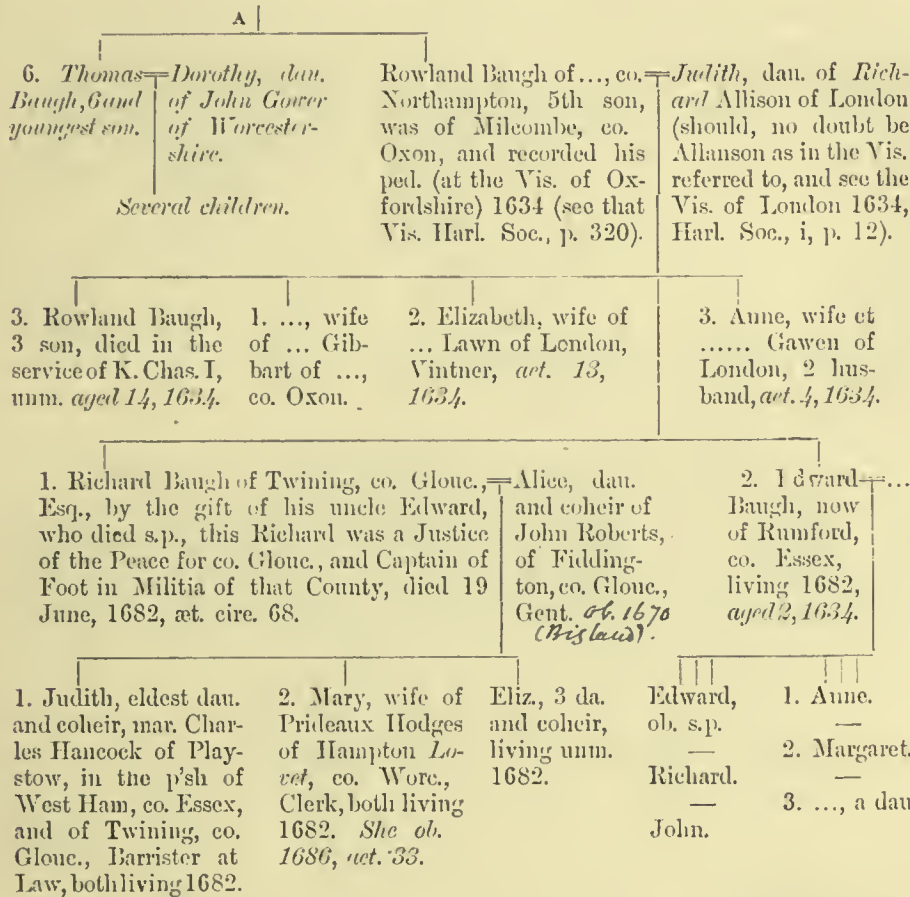 A
6. Thomas
Baugh, 6 and
youngest son.
Dorothy, dau.
of John Gower
of Worcester-
shire.
Several children.
Rowland Baugh of ..., co.
Northampton, 5th son,
was of Milcombe, co.
Oxon, and recorded his
ped. (at the Vis. of Ox-
fordshire) 1634 (see that
Vis. Harl. Soc., p. 320).
Judith, dau. of Rich-
ard Allison of London
(should, no doubt be
Allanson as in the Vis.
referred to, and see the
Vis. of London 1634,
Harl. Soc., i, p. 12).
3. Rowland Baugh,
3 son, died in the
service of K. Chas. I,
unm. aged 14, 1634.
1. ..., wife
of ... Gib-
bart of ...,
co. Oxon.
2. Elizabeth, wife of
... Lawn of London,
Vintner, æt. 13,
1634.
3. Anne, wife et
...... Gawen of
London, 2 hus-
band, æt. 4, 1634.
1. Richard Baugh of Twining, co. Glouc.,
Esq., by the gift of his uncle Edward,
who died s.p., this Richard was a Justice
of the Peace for co. Glouc., and Captain of
Foot in Militia of that County, died 19
June, 1682, æt. circ. 68.
Alice, dau.
and coheir of
John Roberts,
of Fidding-
ton, co. Glouc.,
Gent. ob. 1670
(Bigland).
2. Edward
Baugh, now
of Rumford,
co. Essex,
living 1682,
aged 2, 1634.
...
1. Judith, eldest dau.
and coheir, mar. Char-
les Hancock of Play-
stow, in the p'sh of
West Ham, co. Essex,
and of Twining, co.
Glouc., Barrister at
Law, both living 1682.
2. Mary, wife of
Prideaux Hodges
of Hampton Lo-
vet, co. Worc.,
Clerk, both living
1682. She ob.
1686, æt. 33.
Eliz., 3 da.
and coheir,
living unm.
1682.
Edward,
ob. s.p.
—
Richard.
—
John.
1. Anne.
—
2. Margaret.
—
3. ..., a dau